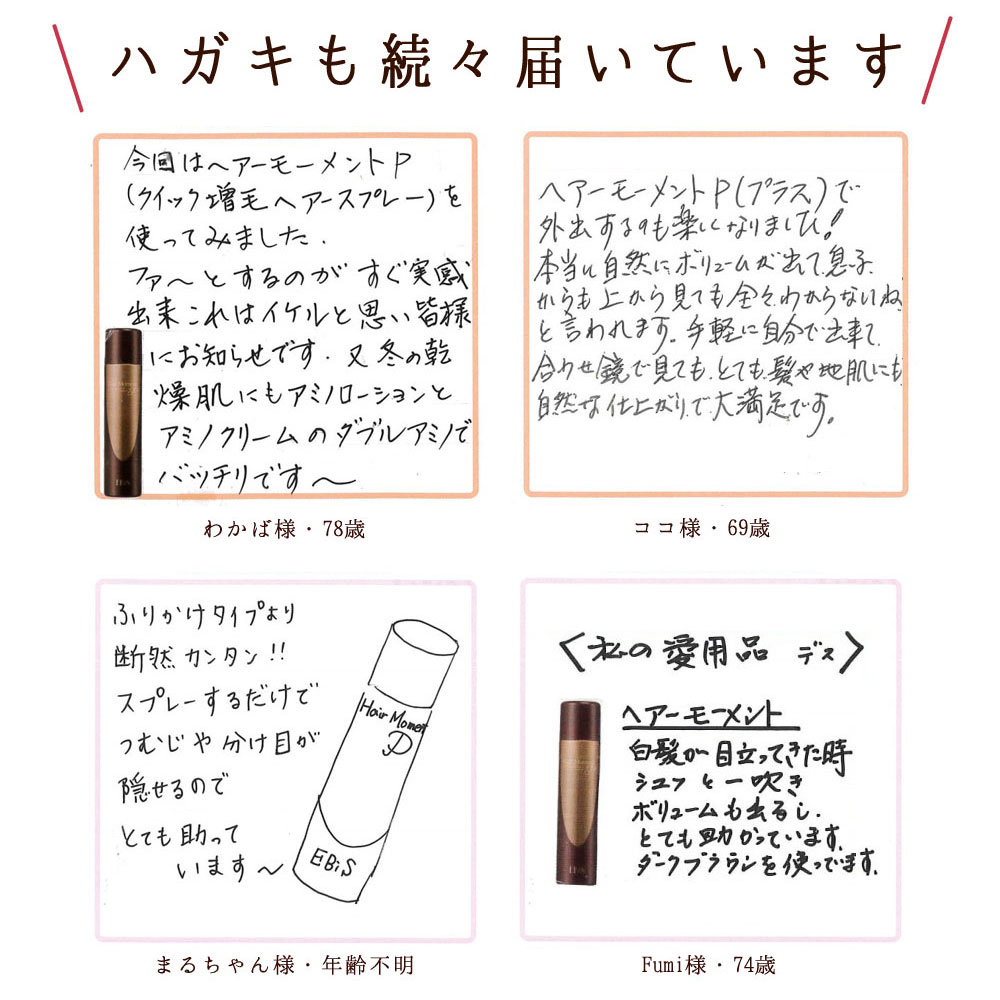 ハガキも続々届いています
今回はヘアーモーメントP
(クイック増毛ヘアースプレー)を
使ってみました.
ファ〜とするのがすぐ実感
出来これはイケルと思い皆様
にお知らせです.又冬の乾
燥肌にもアミノローションと
アミノクリームのダブルアミノで
バッチリです〜
わかば様・78歳
ヘアーモーメントP(プラス)で
外出するのも楽しくなりました!
本当に自然にボリュームが出て、息子
からも上から見ても全々わからないね
と言われます。手軽に自分で出来て、
合わせ鏡で見ても、とても髪や地肌にも
自然な仕上がりで大満足です。
ココ様・69歳
ふりかけタイプより
断然カンタン!!
スプレーするだけで
つむじや分け目が
隠せるので
とても助って
います〜
Hair Moment
P
EBiS
まるちゃん様・年齢不明
〈私の愛用品 デス〉
ヘアーモーメント
白髪が目立ってきた時
シュッと一吹き
ボリュームも出るし、
とても助かっています。
ダークブラウンを使ってます。
Fumi様・74歳